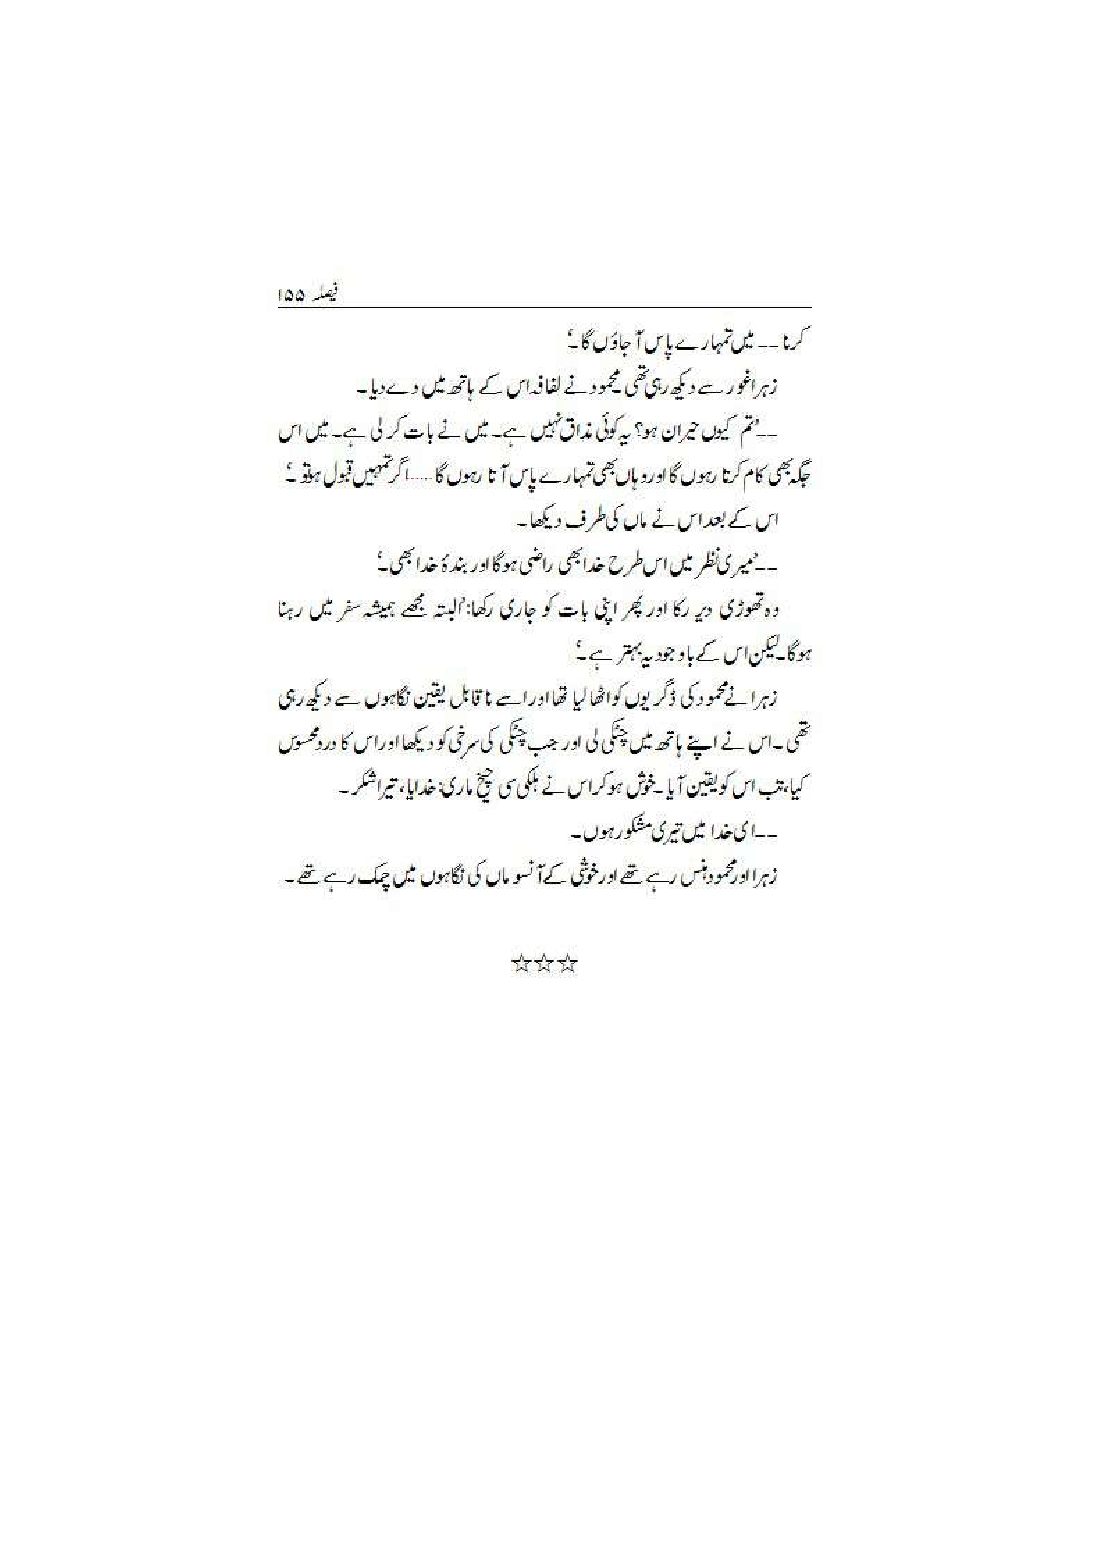 فیصلہ ۱۵۵
کرنا ۔۔ میں تمہارے پاس آ جاؤں گا۔‘
زہرا غور سے دیکھ رہی تھی۔ محمود نے لفافہ اس کے ہاتھ میں دے دیا۔
۔۔’تم کیوں حیران ہو؟ یہ کوئی مذاق نہیں ہے۔ میں نے بات کر لی ہے۔ میں اس
جگہ بھی کام کرتا رہوں گا اور وہاں بھی تمہارے پاس آتا رہوں گا.....اگر تمہیں قبول ہو تو۔‘
اس کے بعد اس نے ماں کی طرف دیکھا۔
۔۔’میری نظر میں اس طرح خدا بھی راضی ہوگا اور بندۂ خدا بھی۔‘
وہ تھوڑی دیر رکا اور پھر اپنی بات کو جاری رکھا: ’البتہ مجھے ہمیشہ سفر میں رہنا
ہوگا۔ لیکن اس کے باوجود یہ بہتر ہے۔‘
زہرا نے محمود کی ڈگریوں کو اٹھا لیا تھا اور اسے ناقابل یقین نگاہوں سے دیکھ رہی
تھی۔ اس نے اپنے ہاتھ میں چٹکی لی اور جب چٹکی کی سرخی کو دیکھا اور اس کا درد محسوس
کیا، تب اس کو یقین آیا۔ خوش ہوکر اس نے ہلکی سی چیخ ماری: خدایا، تیرا شکر۔
۔۔ای خدا میں تیری مشکور ہوں۔
زہرا اور محمود ہنس رہے تھے اور خوشی کے آنسو ماں کی نگاہوں میں چمک رہے تھے۔
☆☆☆